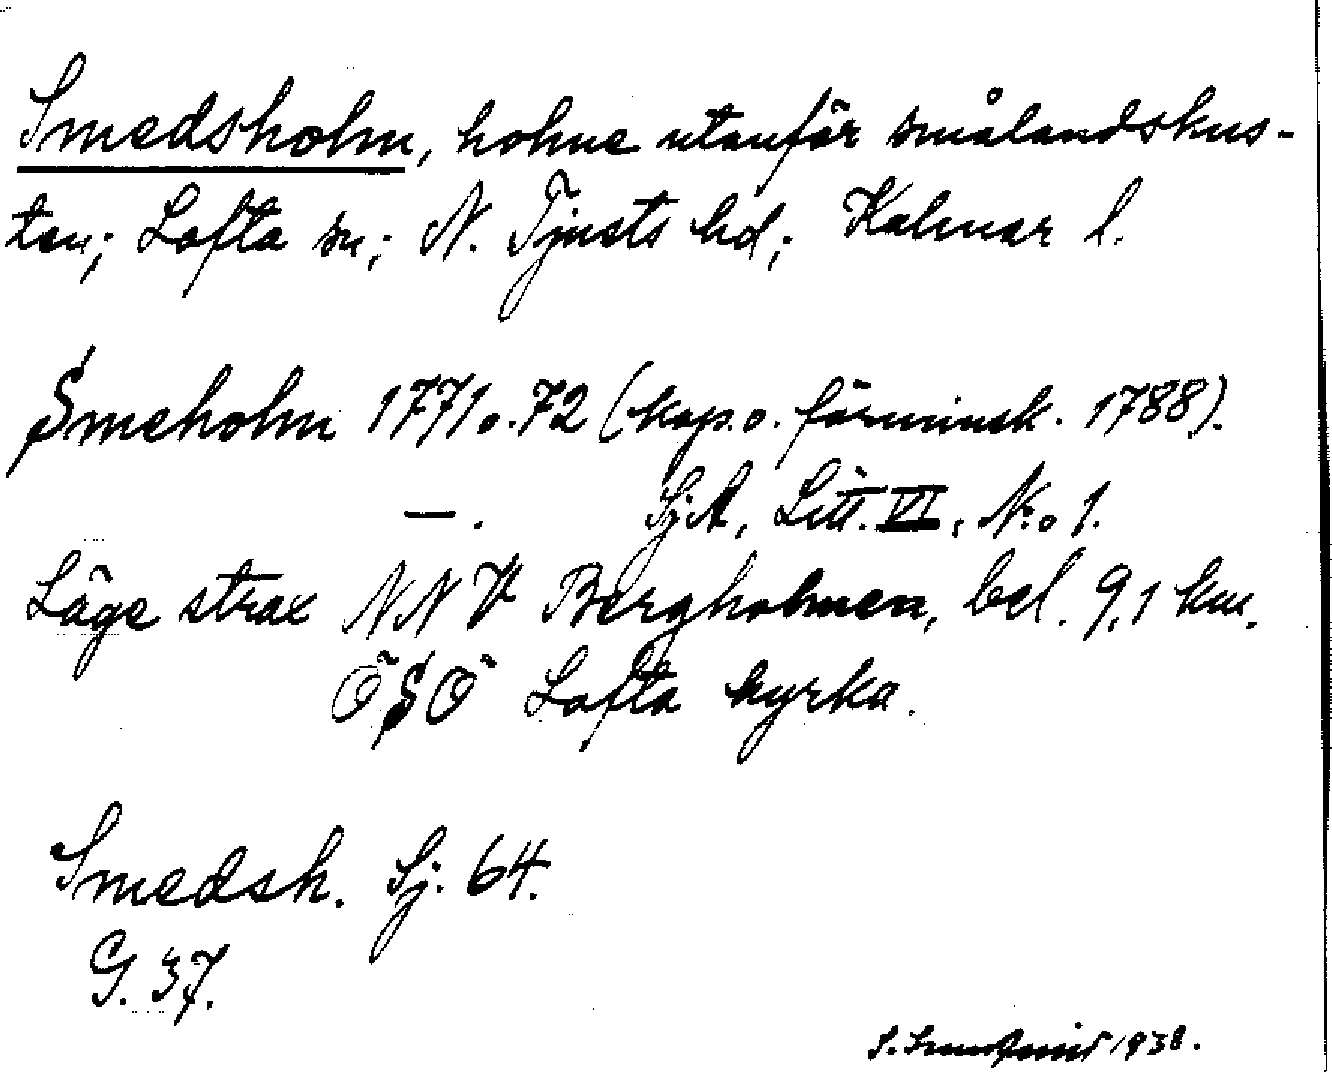 Smedsholm, holme utanför smålandskus-
ten; Lofta sn; N. Tjusts hd; Kalmar l.
Smeholm 1771 o. 72 (kop. o. förminsk. 1788).
—. SjA, Litt. VI, No 1.
Läge strax NNV Bergholmen, bel. 9,1 km.
ÖSÖ Lofta kyrka.
Smedsh. Sj. 64.
G. 37.
S. 1938.